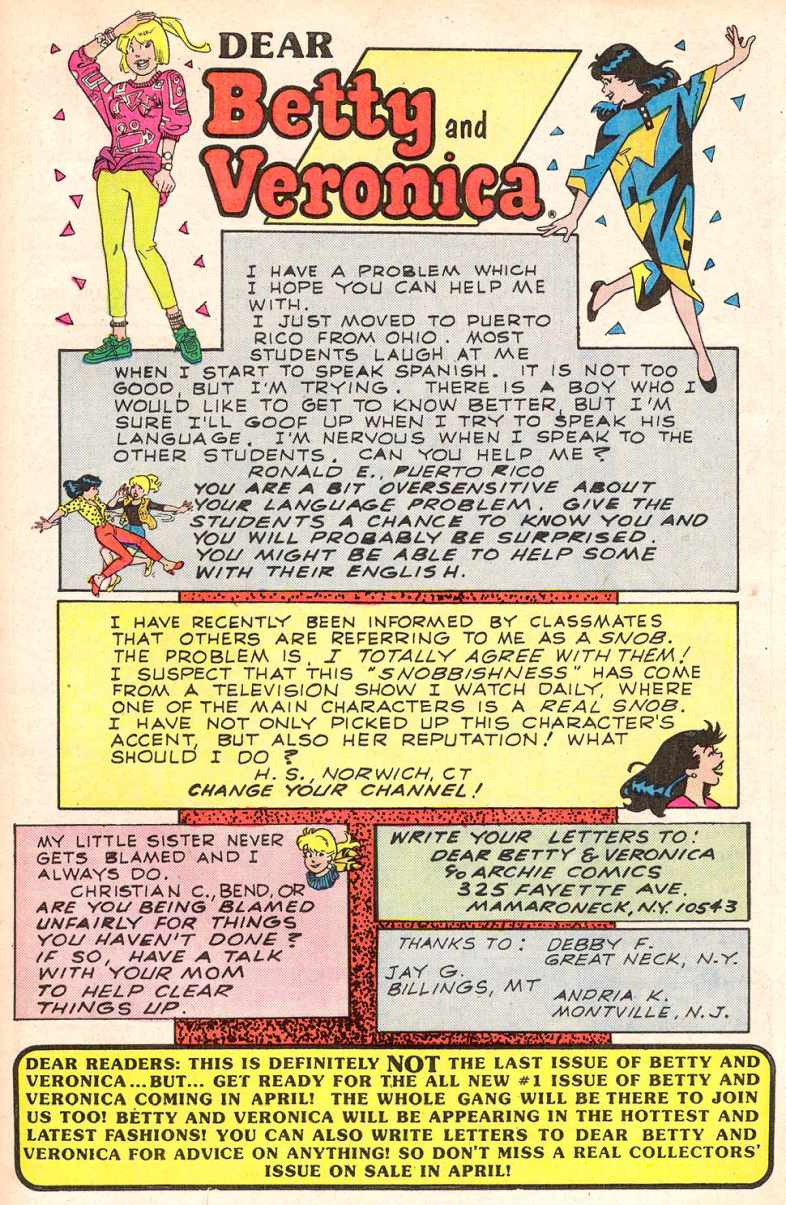 DEAR
Betty and
Veronica®
I HAVE A PROBLEM WHICH
I HOPE YOU CAN HELP ME
WITH.
I JUST MOVED TO PUERTO
RICO FROM OHIO. MOST
STUDENTS LAUGH AT ME
WHEN I START TO SPEAK SPANISH. IT IS NOT TOO
GOOD, BUT I'M TRYING. THERE IS A BOY WHO I
WOULD LIKE TO GET TO KNOW BETTER, BUT I'M
SURE I'LL GOOF UP WHEN I TRY TO SPEAK HIS
LANGUAGE. I'M NERVOUS WHEN I SPEAK TO THE
OTHER STUDENTS. CAN YOU HELP ME?
RONALD E., PUERTO RICO
YOU ARE A BIT OVERSENSITIVE ABOUT
YOUR LANGUAGE PROBLEM. GIVE THE
STUDENTS A CHANCE TO KNOW YOU AND
YOU WILL PROBABLY BE SURPRISED.
YOU MIGHT BE ABLE TO HELP SOME
WITH THEIR ENGLISH.
I HAVE RECENTLY BEEN INFORMED BY CLASSMATES
THAT OTHERS ARE REFERRING TO ME AS A SNOB.
THE PROBLEM IS, I TOTALLY AGREE WITH THEM!
I SUSPECT THAT THIS "SNOBBISHNESS" HAS COME
FROM A TELEVISION SHOW I WATCH DAILY, WHERE
ONE OF THE MAIN CHARACTERS IS A REAL SNOB.
I HAVE NOT ONLY PICKED UP THIS CHARACTER'S
ACCENT, BUT ALSO HER REPUTATION! WHAT
SHOULD I DO?
H. S., NORWICH, CT
CHANGE YOUR CHANNEL!
MY LITTLE SISTER NEVER
GETS BLAMED AND I
ALWAYS DO.
CHRISTIAN C., BEND, OR
ARE YOU BEING BLAMED
UNFAIRLY FOR THINGS
YOU HAVEN'T DONE?
IF SO, HAVE A TALK
WITH YOUR MOM
TO HELP CLEAR
THINGS UP.
WRITE YOUR LETTERS TO:
DEAR BETTY & VERONICA
c/o ARCHIE COMICS
325 FAYETTE AVE.
MAMARONECK, N.Y. 10543
THANKS TO: DEBBY F.
GREAT NECK, N.Y.
JAY G.
BILLINGS, MT
ANDRIA K.
MONTVILLE, N.J.
DEAR READERS: THIS IS DEFINITELY NOT THE LAST ISSUE OF BETTY AND
VERONICA...BUT... GET READY FOR THE ALL NEW #1 ISSUE OF BETTY AND
VERONICA COMING IN APRIL! THE WHOLE GANG WILL BE THERE TO JOIN
US TOO! BETTY AND VERONICA WILL BE APPEARING IN THE HOTTEST AND
LATEST FASHIONS! YOU CAN ALSO WRITE LETTERS TO DEAR BETTY AND
VERONICA FOR ADVICE ON ANYTHING! SO DON'T MISS A REAL COLLECTORS'
ISSUE ON SALE IN APRIL!